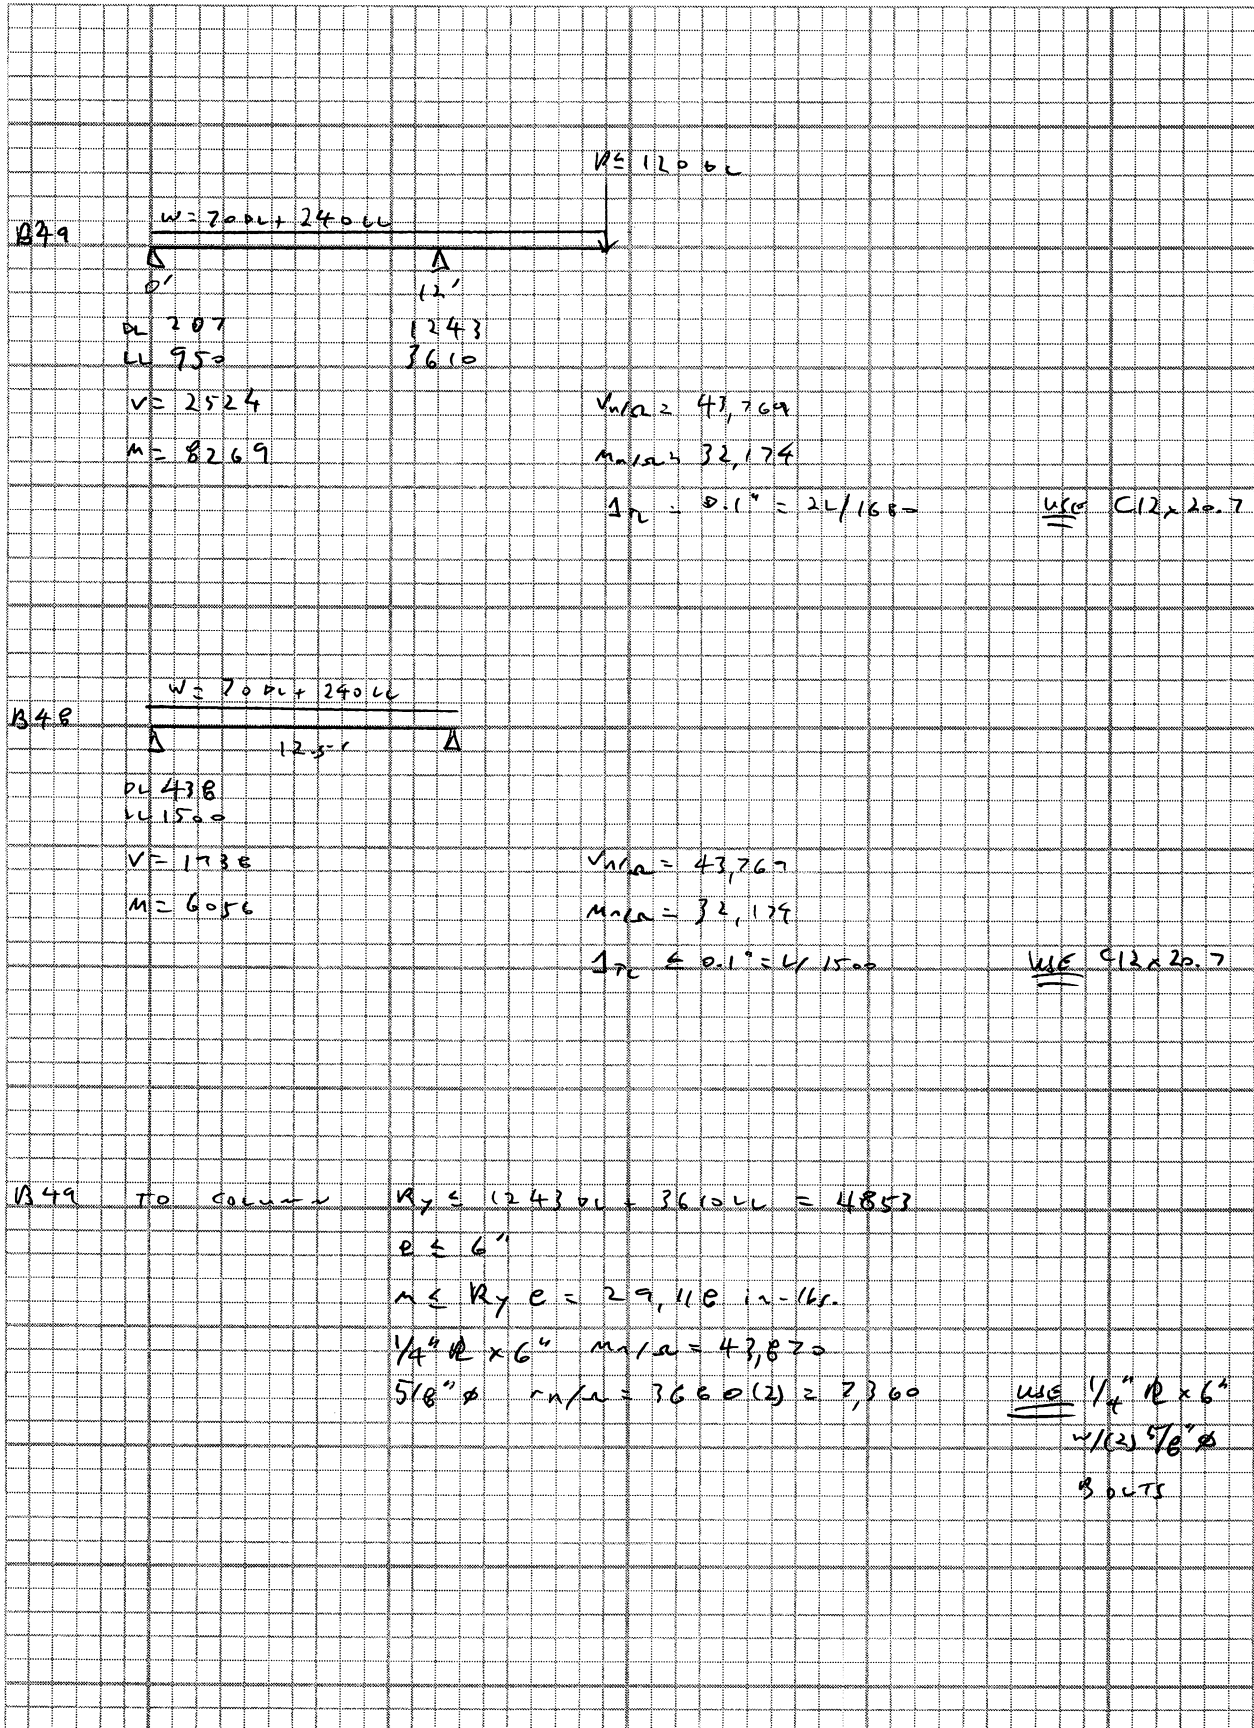 P ≤ 120 DL
W = 70 DL + 240 LL
B49
0' 12'
DL 207 1243
LL 950 3610
V = 2524 Vn/Ω = 43,769
M = 8269 Mn/Ω = 32,174
ΔTL = 0.1" = 2L/1680 USE C12x20.7
W = 70 DL + 240 LL
B48
12.5'
DL 438
LL 1500
V = 1938 Vn/Ω = 43,769
M = 6056 Mn/Ω = 32,174
ΔTL ≤ 0.1" = L/1500 USE C12x20.7
B49 TO COLUMN Ry ≤ 1243 DL + 3610 LL = 4853
e ≤ 6"
M ≤ Ry e = 29,118 in-lbs.
1/4" PL x 6" Mn/Ω = 43,820
5/8" ø rn/Ω = 3680(2) = 7,360 USE 1/4" PL x 6"
w/(2) 5/8" ø
BOLTS